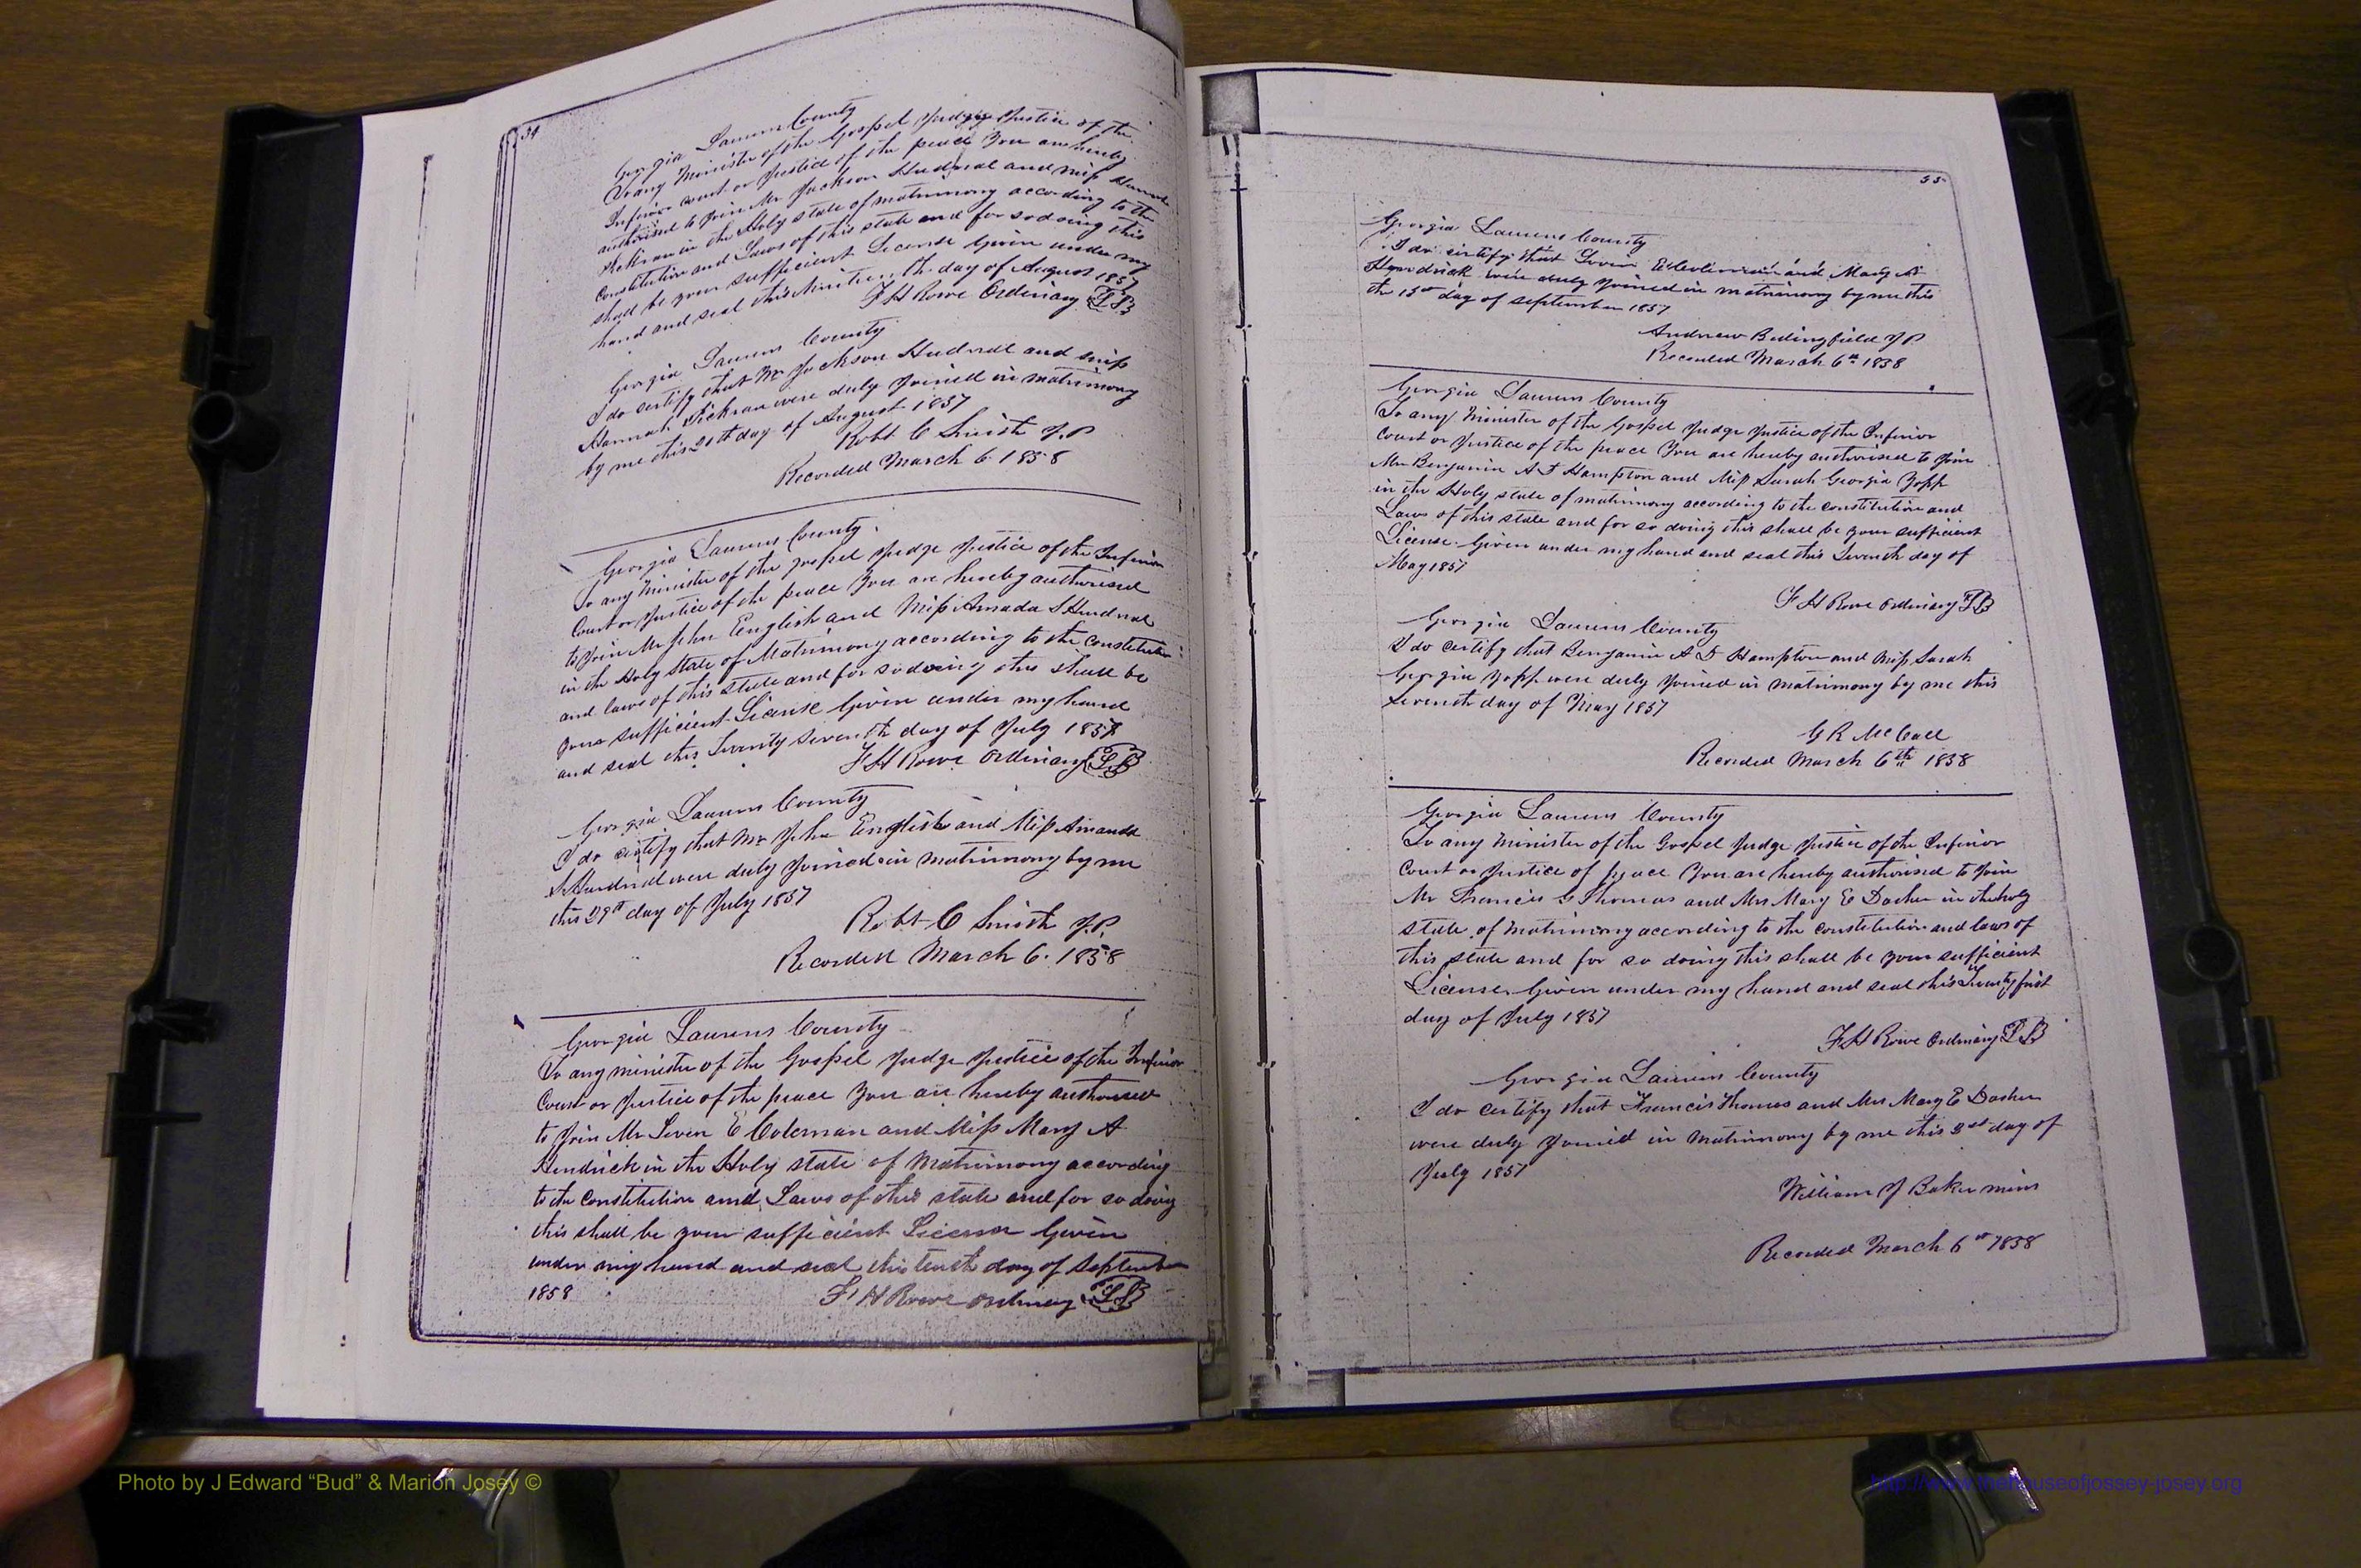 34
Georgia Laurens County
To any Minister of the Gospel Judge Justice of the
Inferior court or Justice of the peace You are hereby
authorised to Join Mr Jackson Hudnal and Miss Hannah
in the Holy state of matrimony according to the
constitution and Laws of this state and for so doing this
shall be your sufficient License Given under my
hand and seal this Nineteenth day of August 1857
F H Rowe Ordinary
Georgia Laurens County
I do certify that Mr Jackson Hudnal and Miss
Hannah were duly Joined in matrimony
by me this 20th day of August 1857
Robt C Smith J.P
Recorded March 6. 1858
Georgia Laurens County.
To any Minister of the gospel Judge Justice of the Inferior
Court or Justice of the peace You are hereby authorised
to Join Mr John English and Miss Amada S Hudnal
in the Holy State of Matrimony according to the Constitution
and laws of this state and for so doing this shall be
your sufficient License Given under my hand
and seal this Twenty seventh day of July 1857
F H Rowe Ordinary
Georgia Laurens County
I do certify that Mr John English and Miss Amanda
S Hudnal were duly Joined in matrimony by me
this 29th day of July 1857
Robt C Smith J.P.
Recorded March 6. 1858
Georgia Laurens County
To any minister of the Gospel Judge Justice of the Inferior
Court or Justice of the peace You are hereby authorised
to Join Mr Leven E Coleman and Miss Mary A
Hendrick in the Holy state of Matrimony according
to the Constitution and Laws of this state and for so doing
this shall be your sufficient License Given
under my hand and seal this tenth day of September
1858
F H Rowe Ordinary
55
Georgia Laurens County
I do certify that Leven and Mary A
Hendrick were duly Joined in matrimony by me this
the 15th day of September 1857
Andrew Bedingfield JP
Recorded March 6th 1858
Georgia Laurens County
To any Minister of the Gospel Judge Justice of the Inferior
Court or Justice of the peace You are hereby authorised to Join
Mr Benjamin A T Hampton and Miss Sarah Georgia Yopp
in the Holy state of matrimony according to the constitution and
Laws of this state and for so doing this shall be your sufficient
License. Given under my hand and seal this Seventh day of
May 1857
F H Rowe Ordinary
Georgia Laurens County
I do certify that Benjamin A T Hampton and Miss Sarah
Georgia Yopp were duly Joined in matrimony by me this
Seventh day of May 1857
G R McCall
Recorded March 6th 1858
Georgia Laurens County
To any minister of the Gospel Judge Justice of the Inferior
Court or Justice of peace You are hereby authorised to Join
Mr Francis Thomas and Mrs Mary E Dasher in the holy
state of matrimony according to the constitution and laws of
this state and for so doing this shall be your sufficient
License. Given under my hand and seal this Twenty first
day of July 1857
F H Rowe Ordinary
Georgia Laurens County
I do certify that Francis Thomas and Mrs Mary E Dasher
were duly Joined in matrimony by me this day of
July 1857
William J Baker mins
Recorded March 6th 1858
Photo by J Edward “Bud” & Marion Josey ©
http://www.thehouseofjossey-josey.org